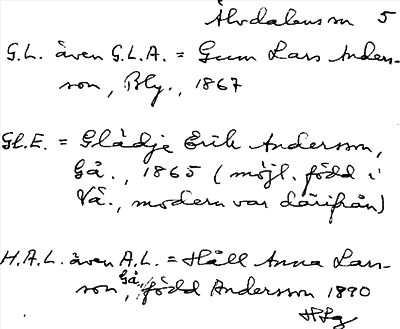 Älvdalens sn 5
G.L. även G.L.A. = Gum Lars Anders-
son, Bly., 1867
Gl.E. = Glädje Erik Andersson,
Gå., 1865 (möjl. född i
Vå., modern var därifrån)
H.A.L. även A.L. = Håll Anna Lars-
son, Gå., född Andersson 1890